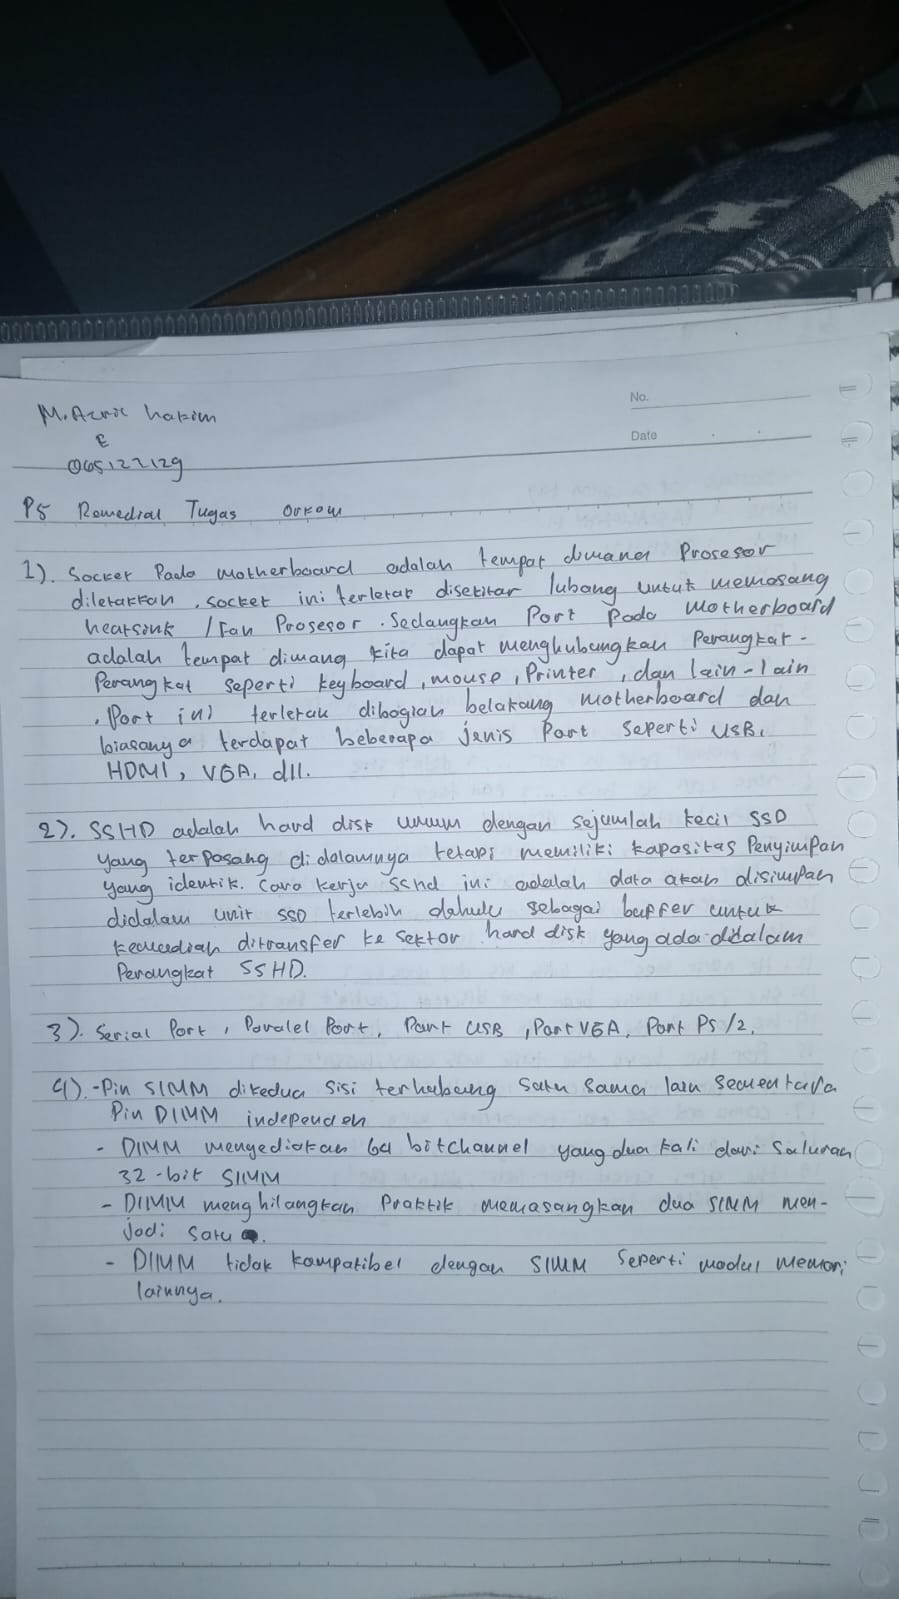 M. Azric hakim
No.
E
Date
065122129
P5 Remedial Tugas Orkom
1). Socket Pada motherboard adalah tempat dimana Prosesor
diletakkan, socket ini terletak disekitar lubang untuk memasang
heatsink / Fan Prosesor. Sedangkan Port pada motherboard
adalah tempat dimana kita dapat menghubungkan Perangkat -
Perangkat seperti keyboard, mouse, Printer, dan lain-lain
, Port ini terletak dibagian belakang motherboard dan
biasanya terdapat beberapa jenis Port seperti USB,
HDMI, VGA, dll.
2). SSHD adalah hard disk umum dengan sejumlah kecil SSD
yang terpasang didalamnya tetapi memiliki kapasitas Penyimpan
yang identik. Cara kerja SShd ini adalah data akan disimpan
didalam unit SSD terlebih dahulu sebagai buffer untuk
kemudian ditransfer ke sektor hard disk yang ada didalam
Perangkat SSHD.
3). Serial Port, Paralel Port, Port USB, Port VGA, Port PS/2.
4). - Pin SIMM dikedua sisi terhubung satu sama lain sementara
Pin DIMM independen
- DIMM mengediakan 64 bitchannel yang dua kali dari Saluran
32-bit SIMM
- DIMM menghilangkan Praktik memasangkan dua SIMM men-
jadi satu.
- DIMM tidak kompatibel dengan SIMM seperti modul memori
lainnya.